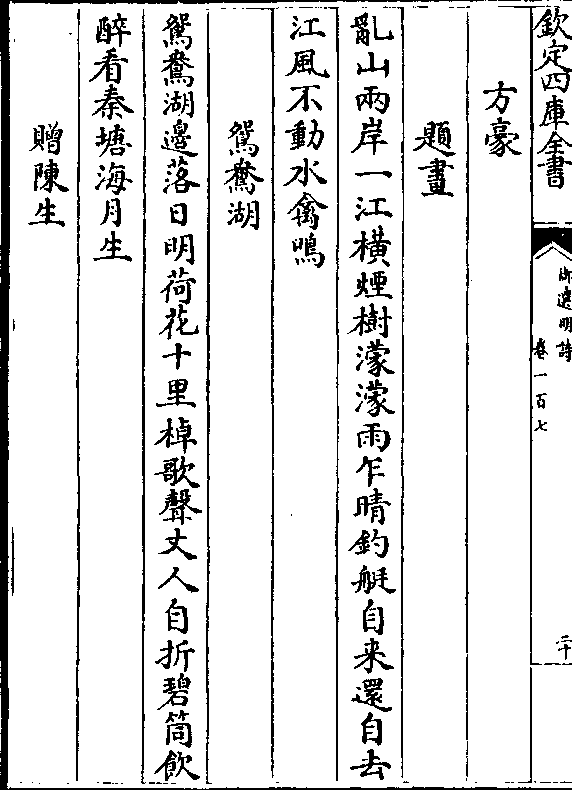 欽定四庫全書
御選明詩
卷一百七
二十
方豪
題畫
亂山兩岸一江橫煙樹濛濛雨乍晴釣艇自来還自去
江風不動水禽鳴
鴛鴦湖
鴛鴦湖邊落日明荷花十里棹歌聲丈人自折碧筒飲
醉看秦塘海月生
贈陳生